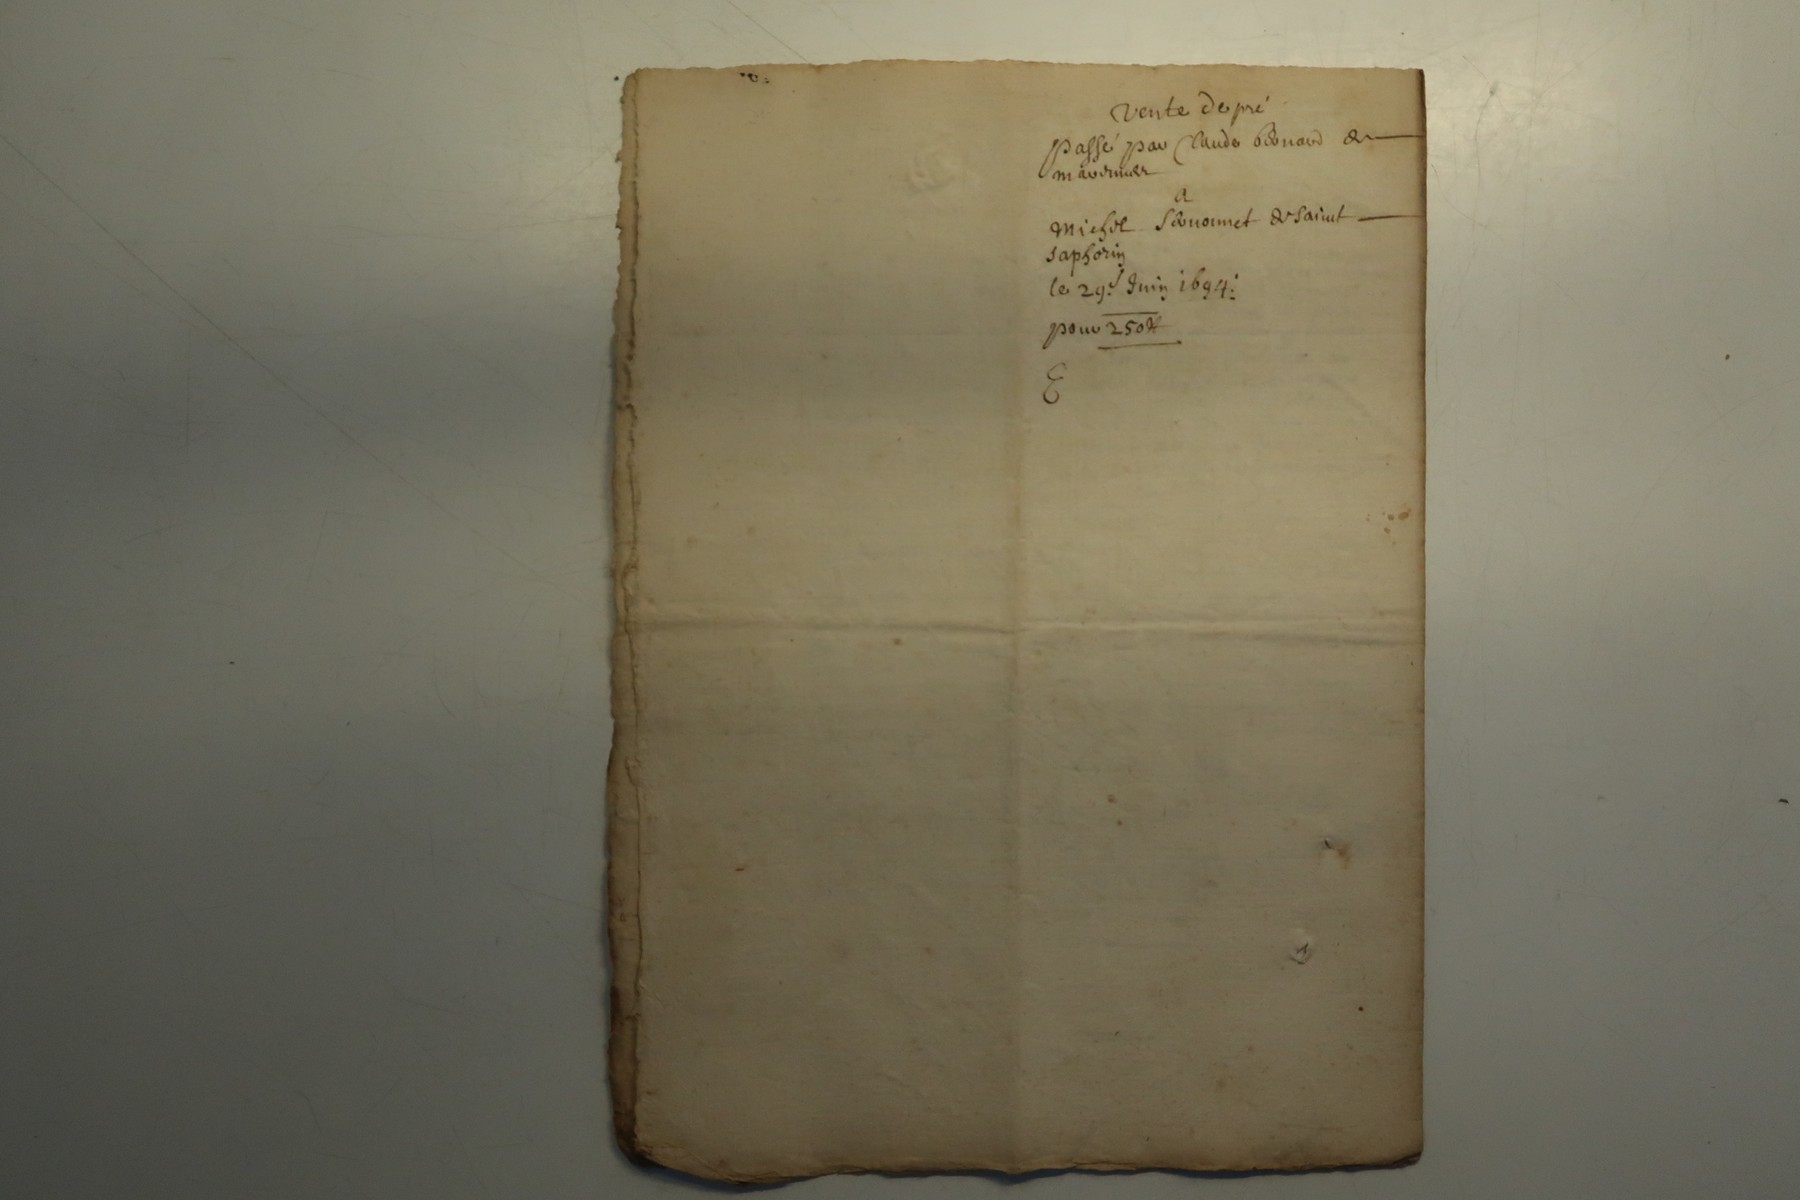 Vente de pré
passé par Claude de
à
Michel de Saint
Saphorin
le 29e Juin 1694
pour 250 ₶
E